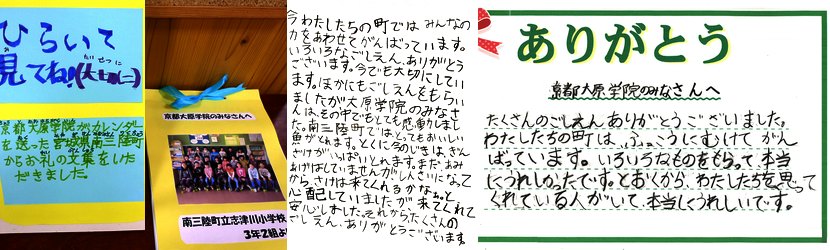 ひらいて
見てね!(大切に)
たいせつ
京都大原学院がカレンダー
を送った宮城県南三陸町
からお礼の文集をいた
だきました。
京都大原学院のみなさんへ
南三陸町立志津川小学校
3年2組より
今わたしたちの町では みんなの
力をあわせてがんばっています。
いろいろなごしえん、ありがとう
ございます。今でも大切にしてい
ます。ほかにもごしえんをもらい
ましたが大原学院のみなさ
んは、その中でもとても感動しまし
た。南三陸町ではとってもおいしい
魚がとれます。とくに今のじきは、ぎん
ざけがいっぱいとれます。まだおみ
あげはしていませんがしんさいになって
から、さけは来てくれるかな。と
心配していましたが来てくれて
安心しました。それからたくさんの
ごしえん、ありがとうございます
ありがとう
京都大原学院のみなさんへ
たくさんのごしえんありがとうございました。
わたしたちの町は、ふっこうにむけてがん
ばっています。いろいろなものをもらって本当
にうれしかったです。とおくから、わたしたちを思って
くれている人がいて、本当にうれしいです。